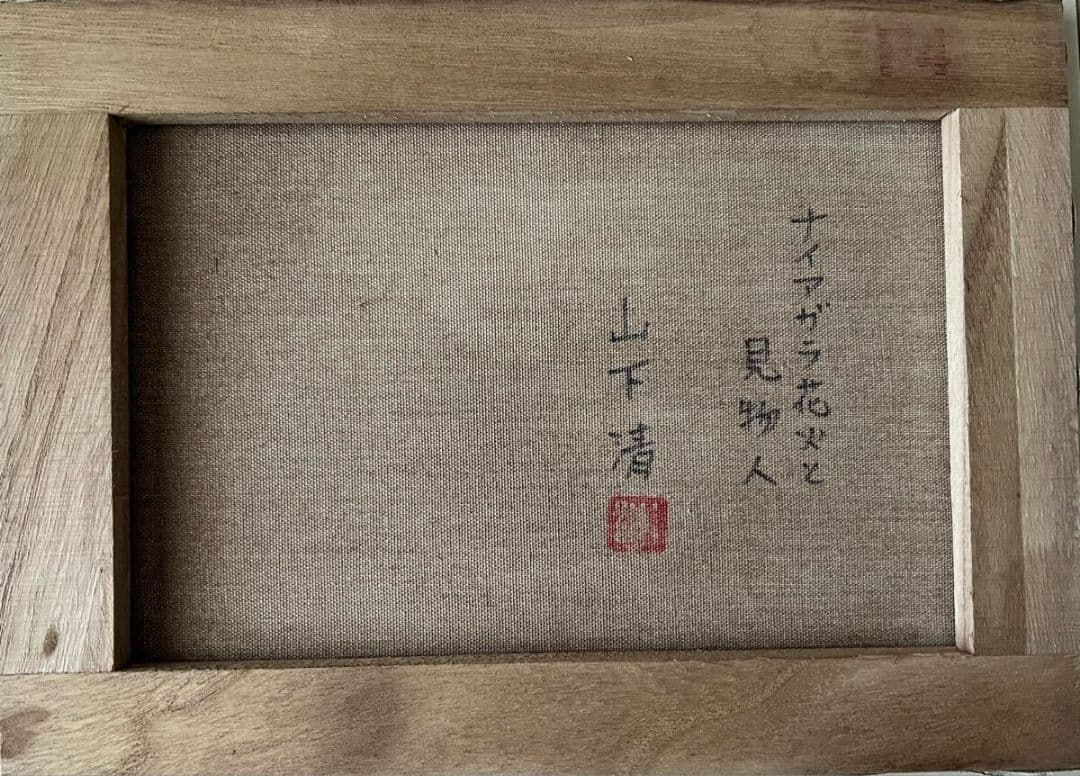 ナイアガラ花火と
見物人
山下清